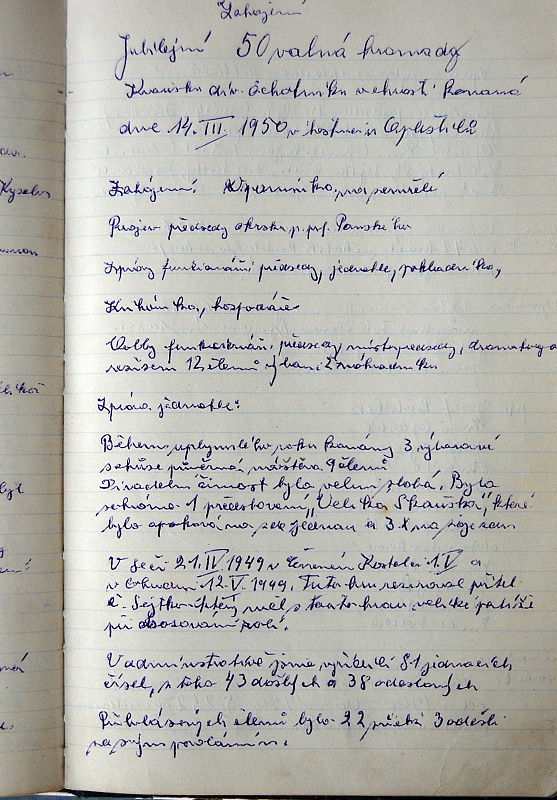 Zahájení
Jubilejní 50 valná hromada
div. ochotníků konaná
dne 14. III. 1950 v hostinci
Zahájení. Vzpomínka na zemřelé
Projev předsedy okrsku p. prf.
Zprávy funkcionářů předsedy, jednatele, pokladníka,
Knihovníka, hospodáře
Volby funkcionářů, předsedy místopředsedy,
12 členů výboru 2 náhradníků
Zpráva jednatele:
Během uplynulého roku konány 3 výborové
schůze průměrná návštěva 9 členů
Divadelní činnost byla velmi slabá. Byla
sehrána 1 představení „Veliká Zkouška", které
bylo opakováno jednou a 3 x na zájezdu
V Seči 21. IV 1949 v Kostelci 1. V a
v 12. V. 1949. Tuto hru režíroval přítel
č. který měl s touto hrou veliké potíže
při obsazování rolí.
V administrativě jsme vyřídili 81 jednacích
čísel, z toho 43 došlých a 38 odeslaných
Přihlášených členů bylo 22 3 odešli